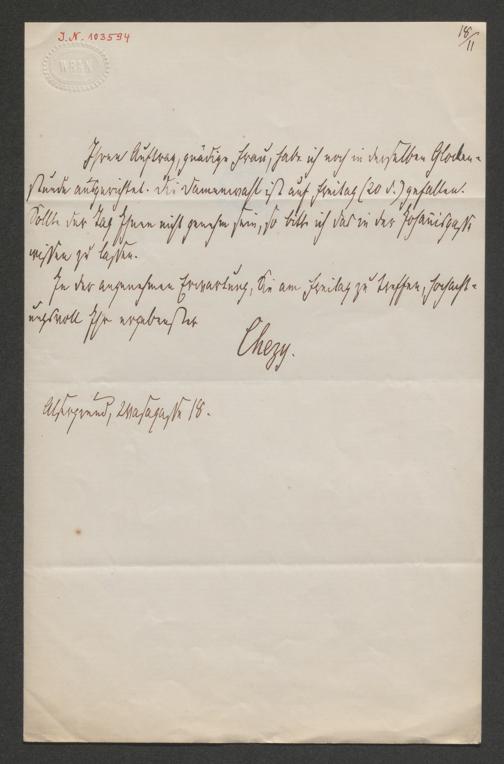 I.N. 103594
18/11
WEEK
Ihren Auftrag, gnädige Frau, habe ich noch in derselben Glocken-
stunde ausgerichtet. Die Damenwahl ist auf Freitag (20 d.) gefallen.
Sollte der Tag Ihnen nicht genehm sein, so bitte ich das in der Johannisgasse
wissen zu lassen.
In der angenehmen Erwartung, Sie am Freitag zu treffen, hochacht-
ungsvoll Ihr ergebenster
Chezy.
Alsergrund, Wasagasse 18.